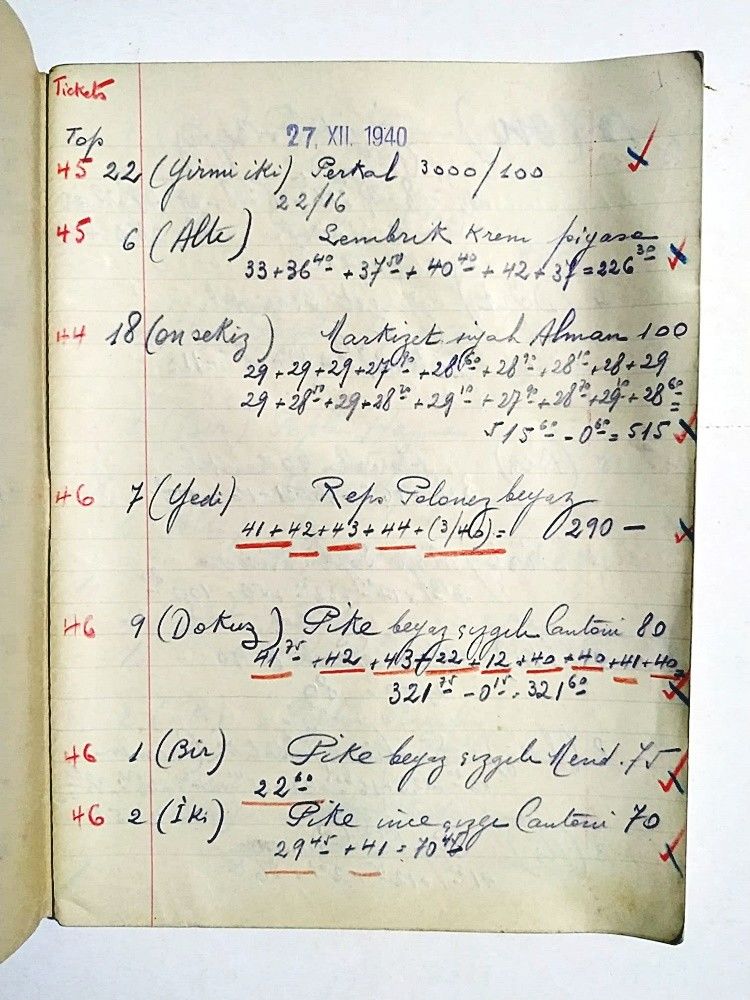 Tickets
Top
27. XII. 1940
45 22 (Yirmi iki) Perkal 3000/100
22/16
45 6 (Altı) Lembrik Krem piyasa
33+36⁴⁰+37⁵⁰+40⁴⁰+42+37=226³⁰
44 18 (on sekiz) Markizet siyah Alman 100
29+29+29+27⁹⁰+28⁶⁰+28⁷⁰+28¹⁰+28+29
29+28⁵⁰+29+28²⁰+29¹⁰+27⁹⁰+28⁷⁰+29¹⁰+28⁶⁰=
515⁶⁰-0⁶⁰=515
46 7 (Yedi) Reps Polonez beyaz
41+42+43+44+(3/40)= 290 —
46 9 (Dokuz) Pike beyaz çizgili Cantoni 80
41⁷⁵+42+43+22+12+40+40+41+40
321⁷⁵-0¹⁵=321⁶⁰
46 1 (Bir) Pike beyaz çizgili Merid. 75
22⁶⁰
46 2 (İki) Pike ince çizgi Cantoni 70
29⁴⁵+41=70⁴⁵